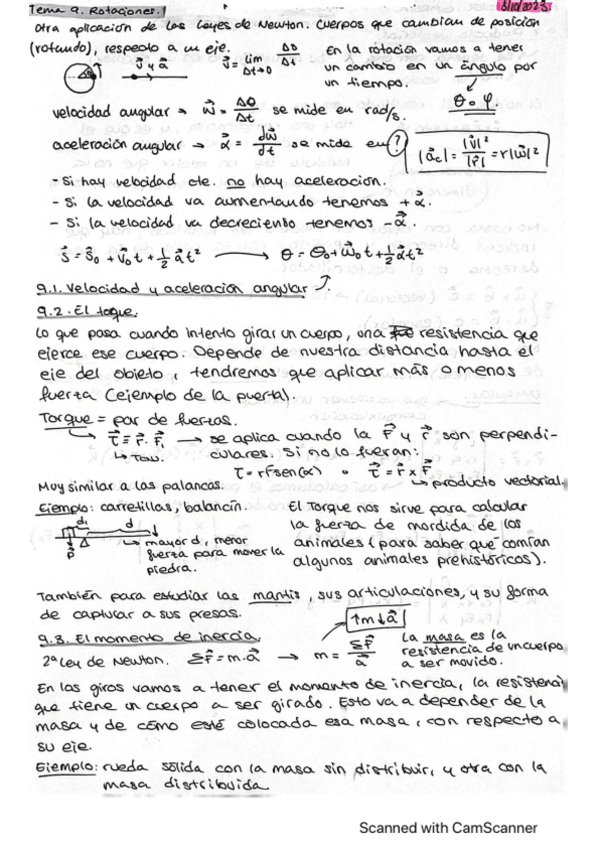 Tema 9. Rotaciones.
31/10/2023
Otra aplicación de las leyes de Newton. Cuerpos que cambian de posición
(rotando), respecto a un eje.
v⃗ y a⃗
v⃗ = lim Δt→0 ΔD/Δt
En la rotación vamos a tener
un cambio en un ángulo por
un tiempo.
θ o φ
velocidad angular → ω⃗ = Δθ/Δt se mide en rad/s.
aceleración angular → α⃗ = dω⃗/dt se mide en ?
|a⃗c| = |v⃗|²/|r⃗| = r|ω⃗|²
- Si hay velocidad cte. no hay aceleración.
- Si la velocidad va aumentando tenemos + α⃗.
- Si la velocidad va decreciento tenemos - α⃗.
s⃗ = s⃗₀ + v⃗₀t + 1/2 a⃗t² → θ = θ₀ + ω⃗₀t + 1/2 α⃗t²
9.1. Velocidad y aceleración angular
9.2. El toque.
Lo que pasa cuando intento girar un cuerpo, una resistencia que
ejerce ese cuerpo. Depende de nuestra distancia hasta el
eje del objeto, tendremos que aplicar más o menos
fuerza (ejemplo de la puerta).
Torque = par de fuerzas.
τ⃗ = r⃗ · F⃗, → se aplica cuando la F⃗ y r⃗ son perpendi-
Tau.
culares. Si no lo fueran:
τ = rFsen(α) o τ⃗ = r⃗ x F⃗
Muy similar a las palancas.
producto vectorial
Ejemplo: carretillas, balancín.
d₁
d
P⃗
mayor d, menor
fuerza para mover la
piedra.
El Torque nos sirve para calcular
la fuerza de mordida de los
animales (para saber que comían
algunos animales prehistóricos).
También para estudiar las mantis, sus articulaciones, y su forma
de capturar a sus presas.
↑m↓a⃗
9.3. El momento de inercia.
2ª Ley de Newton. ΣF⃗ = m·a⃗ → m = ΣF⃗/a⃗
La masa es la
resistencia de un cuerpo
a ser movido.
En los giros vamos a tener el momento de inercia, la resistenci
que tiene un cuerpo a ser girado. Esto va a depender de la
masa y de cómo esté colocada esa masa, con respecto a
su eje.
Ejemplo: rueda sólida con la masa sin distribuir, y otra con la
masa distribuida
Scanned with CamScanner